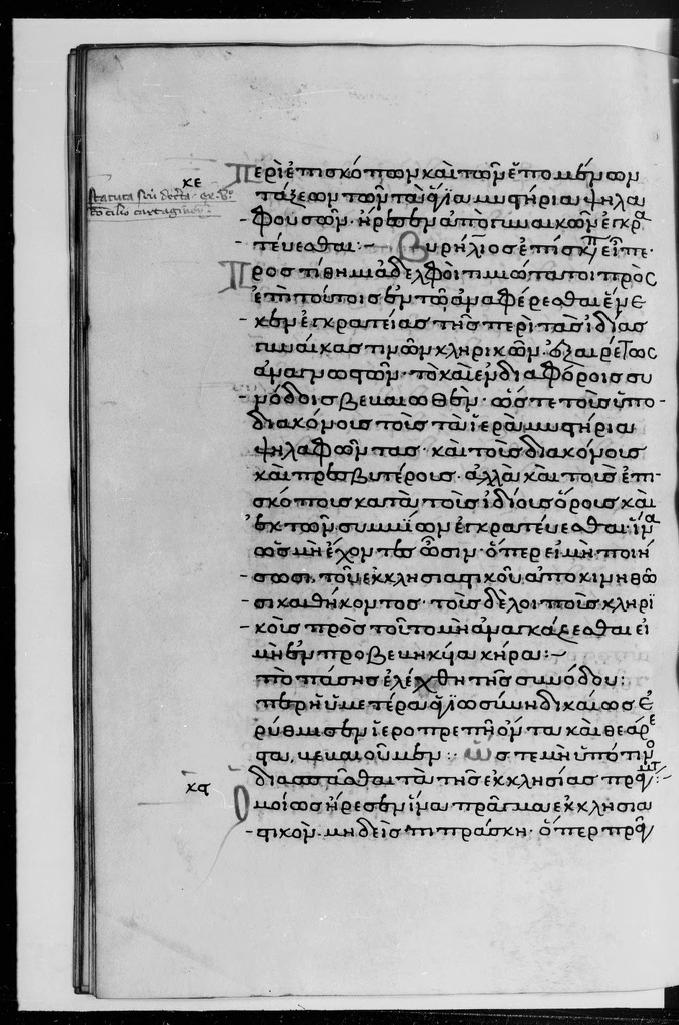 κε
statuta sūū doctā · ex · v°
cōcilio cartaginēn̄ :
Περὶ ἐπισκόπων καὶ τῶν ἑπομένων
τάξεων τῶν τὰ ἅγϊα μυστήρια ψηλα
φούσων · ἤρεσεν ἀπὸ γυναικῶν ἐγκρα
τεύεσθαι :~ Αυρήλϊος ἐπίσκοπος εἶπε ·
Προστίθημι ἀδελφοὶ τιμιώτατοι πρὸς
ἐπὶ τούτοις ἐν τῶ ἀναφέρεσθαι ἕνε
κεν ἐγκρατείας τῆς περὶ τὰς ἰδίας
γυναίκας τινῶν κληρικῶν · ἐξαιρέτως
ἀναγνωστῶν · τὸ καὶ ἐν διαφόροις συ
νόδοις βεβαιωθὲν · ὥστε τοὺς ὑπο
διακόνους τοὺς τὰ ἱερὰ μυστήρια
ψηλαφῶντας · καὶ τοὺς διακόνους
καὶ πρεσβυτέρους · ἀλλὰ καὶ τοὺς ἐπι
σκόπους κατὰ τοὺς ἰδίους ὅρους καὶ
ἐκ τῶν συμβίων ἐγκρατεύεσθαι · ἵνα
ὡς μὴ ἔχοντες ὦσιν · ὅπερ εἰ μὴ ποιή
σωσι, τοῦ ἐκκλησιαστικοῦ ἀποκινηθῶ
σι καθήκοντος · τοὺς δὲ λοιποὺς κληρϊ
κοὺς πρὸς τοῦτο μὴ ἀναγκάζεσθαι εἰ
μὴ ἐν προβεβηκυία κήρα :~
πὸ πάσης ἐλέχθη τῆς συνόδου :
περ ἡ ὑμετέρα ἁγϊωσύνη δικαίως ἐ
ρύθμισεν ἱεροπρεπῆ ὄντα καὶ θεάρε
στα, βεβαιοῦμεν :· Ὥστε μὴ ὑπό τινος
διασπᾶσθαι τὰ τῆς ἐκκλησίας πράγματα :~
κϛ
Ὁμοίως ἤρεσεν ἵνα πρᾶγμα ἐκκλησια
στικὸν μηδεὶς πιπράσκη · ὅπερ πρᾶγμα